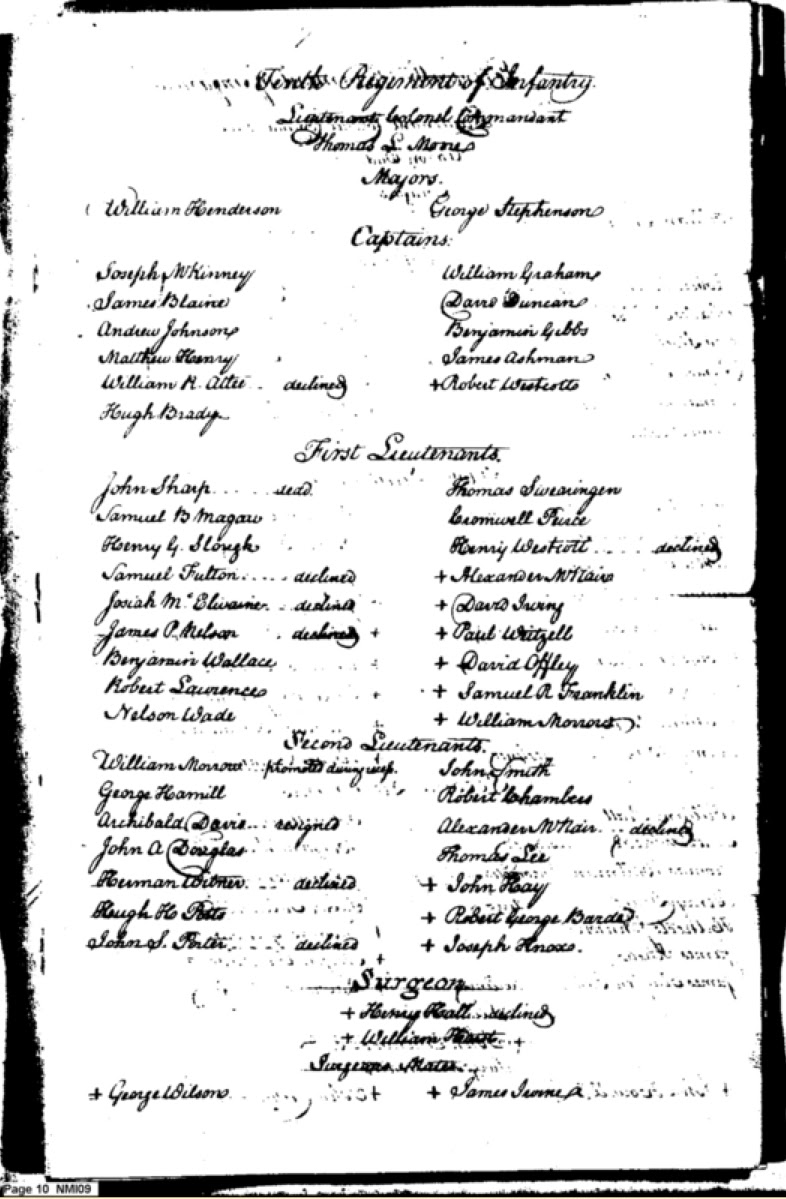 Tenth Regiment of Infantry.
Lieutenant Colonel Commandant
Thomas L. Moore
Majors.
William Henderson George Stephenson
Captains.
Joseph McKinney William Graham
James Blaine David Duncan
Andrew Johnson Benjamin Gibbs
Matthew Henry James Ashman
William R. Atlee .. declined + Robert Westcott
Hugh Brady
First Lieutenants.
John Sharp .... dead. Thomas Swearingen
Samuel B Magaw Cromwell Peirce
Henry G. Slough Henry Westcott .... declined
Samuel Fulton .... declined + Alexander McNair
Josiah Mc Elwaine .. declined + David Irving
James P. Nelson declined + + Paul Weitzell
Benjamin Wallace + David Offley
Robert Lawrence + Samuel R Franklin
Nelson Wade + William Morrow
Second Lieutenants.
William Morrow promoted during recess. John Smith
George Hamill Robert Chambers
Archibald Davis .. resigned Alexander McNair .. declined
John A Douglas Thomas Lee
Herman Witner .... declined + John Hay
Hugh H. Potts + Robert George Barde
John S. Porter ..... declined + Joseph Knox.
Surgeon
+ Henry Hall .. declined
+ William Hurst
Surgeons Mates.
+ George Wilson + James Irvine
Page 10 NMI09